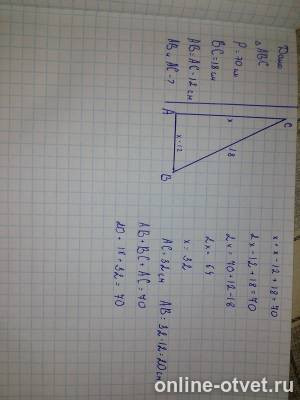 Дано
△ABC
P=70 см
BC=18 см
AB=AC-12 см
AB и AC-?
C
x
18
A
x-12
B
x+x-12+18=70
2x-12+18=70
2x=70+12-18
2x=64
x=32
AC=32 см AB=32-12=20 см
AB+BC+AC=70
20+18+32=70
online-otvet.ru